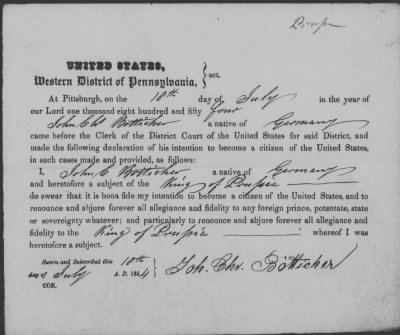 Prussia
UNITED STATES,
Western District of Pennsylvania, } sct.
At Pittsburgh, on the 10th day of July in the year of
our Lord one thousand eight hundred and fifty four
John Ch Botticher a native of Germany
came before the Clerk of the District Court of the United States for said District, and
made the following declaration of his intention to become a citizen of the United States,
in such cases made and provided, as follows:
I, John C Botticher a native of Germany
and heretofore a subject of the King of Prussia
do swear that it is bona fide my intention to become a citizen of the United States, and to
renounce and abjure forever all allegiance and fidelity to any foreign prince, potentate, state
or sovereignty whatever; and particularly to renounce and abjure forever all allegiance and
fidelity to the King of Prussia whereof I was
heretofore a subject.
Sworn and Subscribed this 10th
July A. D. 1854
Joh. Chr. Bötticher